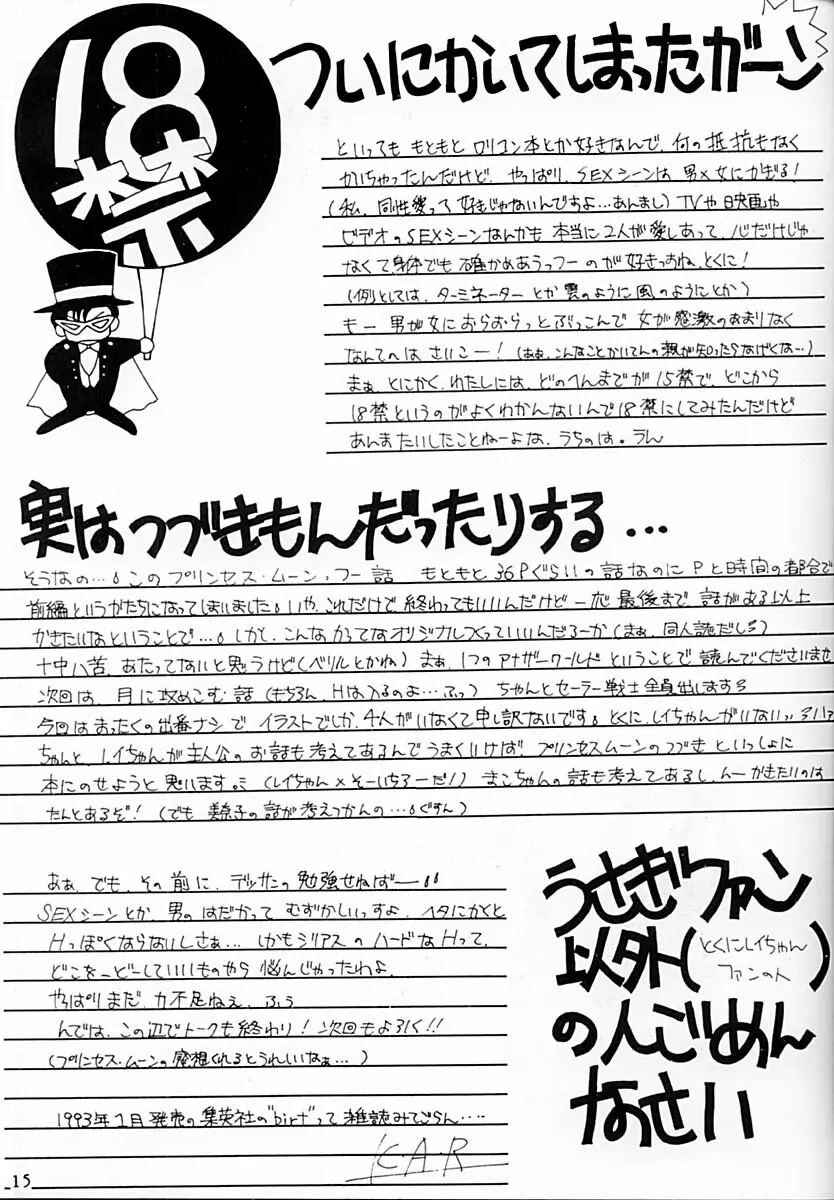 18禁
ついにかいてしまったガーン
といっても もともと ロリコン本とか好きなんで、何の抵抗もなく
かいちゃったんだけど、やっぱり、SEXシーンは 男×女にかぎる!
(私、同性愛って 好きじゃないんですよ…あんまし) TVや映画や
ビデオのSEXシーンなんかも 本当に2人が愛しあって、心だけじゃ
なくて身体でも 確かめあうっつーのが好きっすね、とくに!
(例としては、ターミネーターとか 雲のように風のようにとか)
もー 男が女におらおらっとぶっこんで 女が感激のあまりなく
なんてのは さいこー! (ああ、こんなことかいてんの親が知ったらなげくな…)
まぁ、とにかく、わたしには、どのへんまでが 15禁で、どこから
18禁というのがよくわかんないんで18禁にしてみたんだけど
あんまたいしたことねーよな、うちのは。うん
実はつづきもんだったりする…
そうなの…。このプリンセス・ムーンっつー話 もともと36Pぐらいの話なのにPと時間の都合で
前編というかたちになってしまいました。いや、これだけで終わってもいいんだけど一応最後まで話がある以上
かきたいなということで…。しかし、こんなかってなオリジナルつくっていいんだろーか(まぁ、同人誌だしぃ)
十中八苦、あたってないと思うけど(ベリルとかね) まぁ、1つのアナザーワールドということで読んでくださいませ
次回は、月に攻めこむ話(もちろん、Hは入るのよ…ふっ) ちゃんとセーラー戦士全員出します
今回はまったくの出番ナシで、イラストでしか、4人がいなくて申し訳ないです。とくに、レイちゃんがいない
ちゃんと、レイちゃんが主人公のお話も考えてあるんでうまくいけば、プリンセスムーンのつづきといっしょに
本にのせようと思います。(レイちゃん×そーいちろーだ!) まこちゃんの話も考えてあるし、んーかきたいのは
たんとあるぞ! (でも 美奈子の話が考えつかんの…。ぐすん)
あぁ、でも、その前に、デッサンの勉強せねばー
SEXシーンとか、男のはだかって むずかしいっすよ、ヘタにかくと
Hっぽくならないしさぁ… しかもシリアスのハードなHって、
どこをーどーしていいものやら 悩んじゃったわよ、
やっぱりまだ、力不足ねぇ、ふぅ
んでは、この辺でトークも終わり! 次回もよろしく!!
(プリンセス・ムーンの感想くれるとうれしいなぁ…)
1993年1月発売の集英社の"birt"って雑誌みてごらん….
K.A.R
うさぎファン
以外(とくにレイちゃんファンの人)
の人ごめん
なさい
15